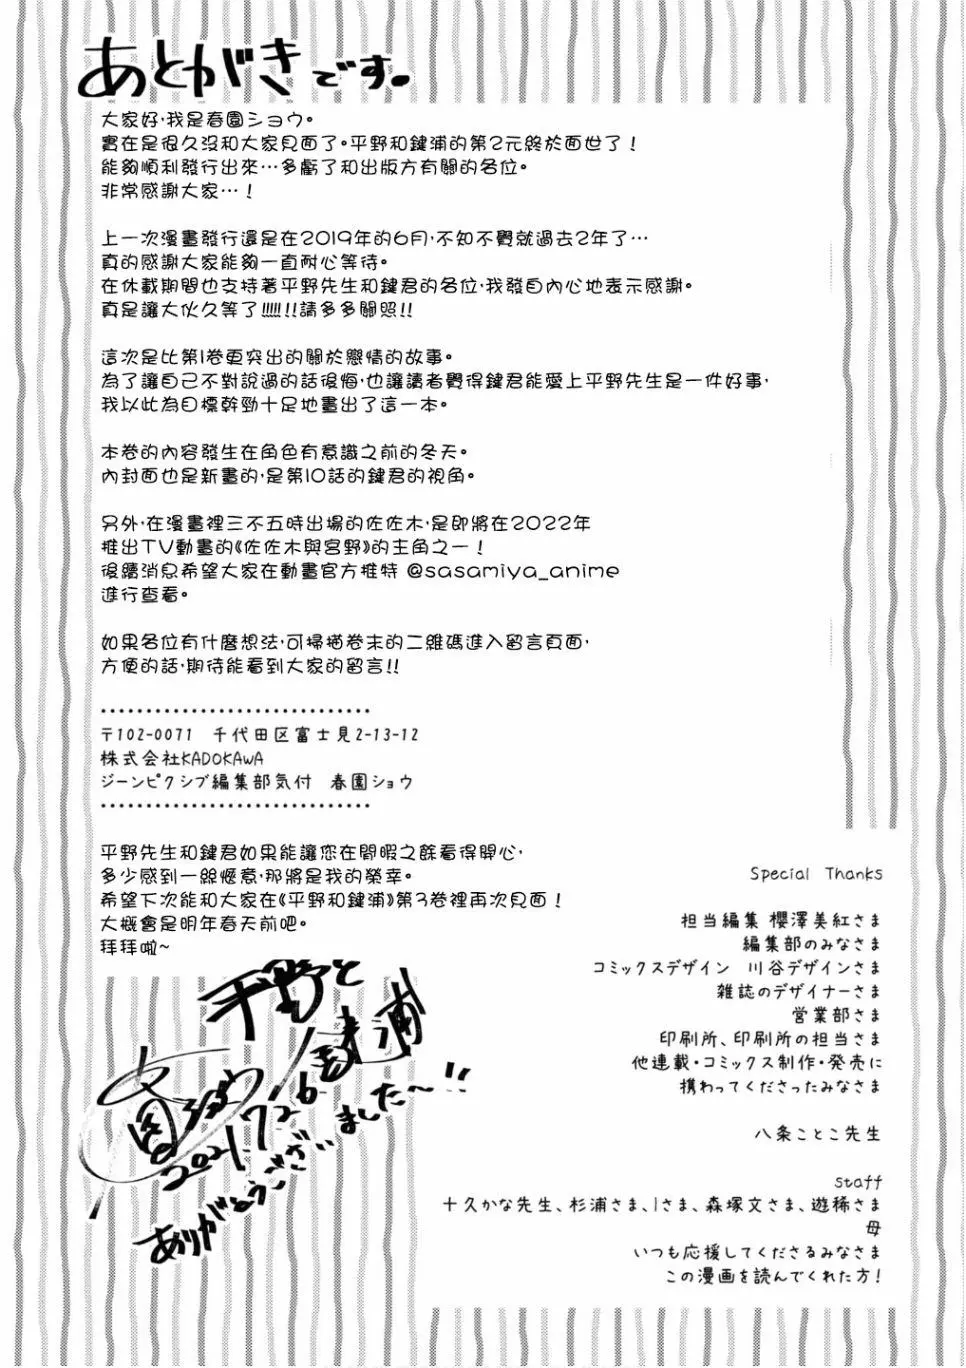 あとがきです。
大家好，我是春園ショウ。
實在是很久沒和大家見面了。平野和鍵浦的第2元終於面世了！
能夠順利發行出來…多虧了和出版方有關的各位。
非常感謝大家…！
上一次漫畫發行還是在2019年的6月，不知不覺就過去2年了…
真的感謝大家能夠一直耐心等待。
在休載期間也支持著平野先生和鍵君的各位，我發自內心地表示感謝。
真是讓大伙久等了!!!!!!請多多關照!!
這次是比第1卷更突出的關於戀情的故事。
為了讓自己不對說過的話後悔，也讓讀者覺得鍵君能愛上平野先生是一件好事，
我以此為目標幹勁十足地畫出了這一本。
本卷的內容發生在角色有意識之前的冬天。
內封面也是新畫的，是第10話的鍵君的視角。
另外，在漫畫裡三不五時出場的佐佐木，是即將在2022年
推出TV動畫的《佐佐木與宮野》的主角之一！
後續消息希望大家在動畫官方推特 @sasamiya_anime
進行查看。
如果各位有什麼想法，可掃描卷末的二維碼進入留言頁面，
方便的話，期待能看到大家的留言!!
〒102-0071 千代田区富士見2-13-12
株式会社KADOKAWA
ジーンピクシブ編集部気付 春園ショウ
平野先生和鍵君如果能讓您在閒暇之餘看得開心，
多少感到一絲愜意，那將是我的榮幸。
希望下次能和大家在《平野和鍵浦》第3卷裡再次見面！
大概會是明年春天前吧。
拜拜啦~
平野と
鍵浦
2021.7.26
ありがとうございました〜!!
Special Thanks
担当編集 櫻澤美紅さま
編集部のみなさま
コミックスデザイン 川谷デザインさま
雑誌のデザイナーさま
営業部さま
印刷所、印刷所の担当さま
他連載・コミックス制作・発売に
携わってくださったみなさま
八条ことこ先生
staff
十久かな先生、杉浦さま、Iさま、森塚文さま、遊稀さま
母
いつも応援してくださるみなさま
この漫画を読んでくれた方！